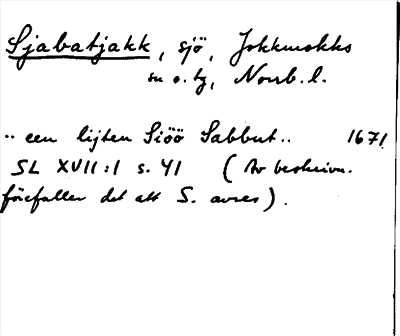 Sjabatjakk, sjö, Jokkmokks
sn o. tg, Norrb. l.
.. een lijten Siöö Sabbut.. 1671
SL XVII:1 s. 41 (Av beskrivn.
förefaller det att S. avses).